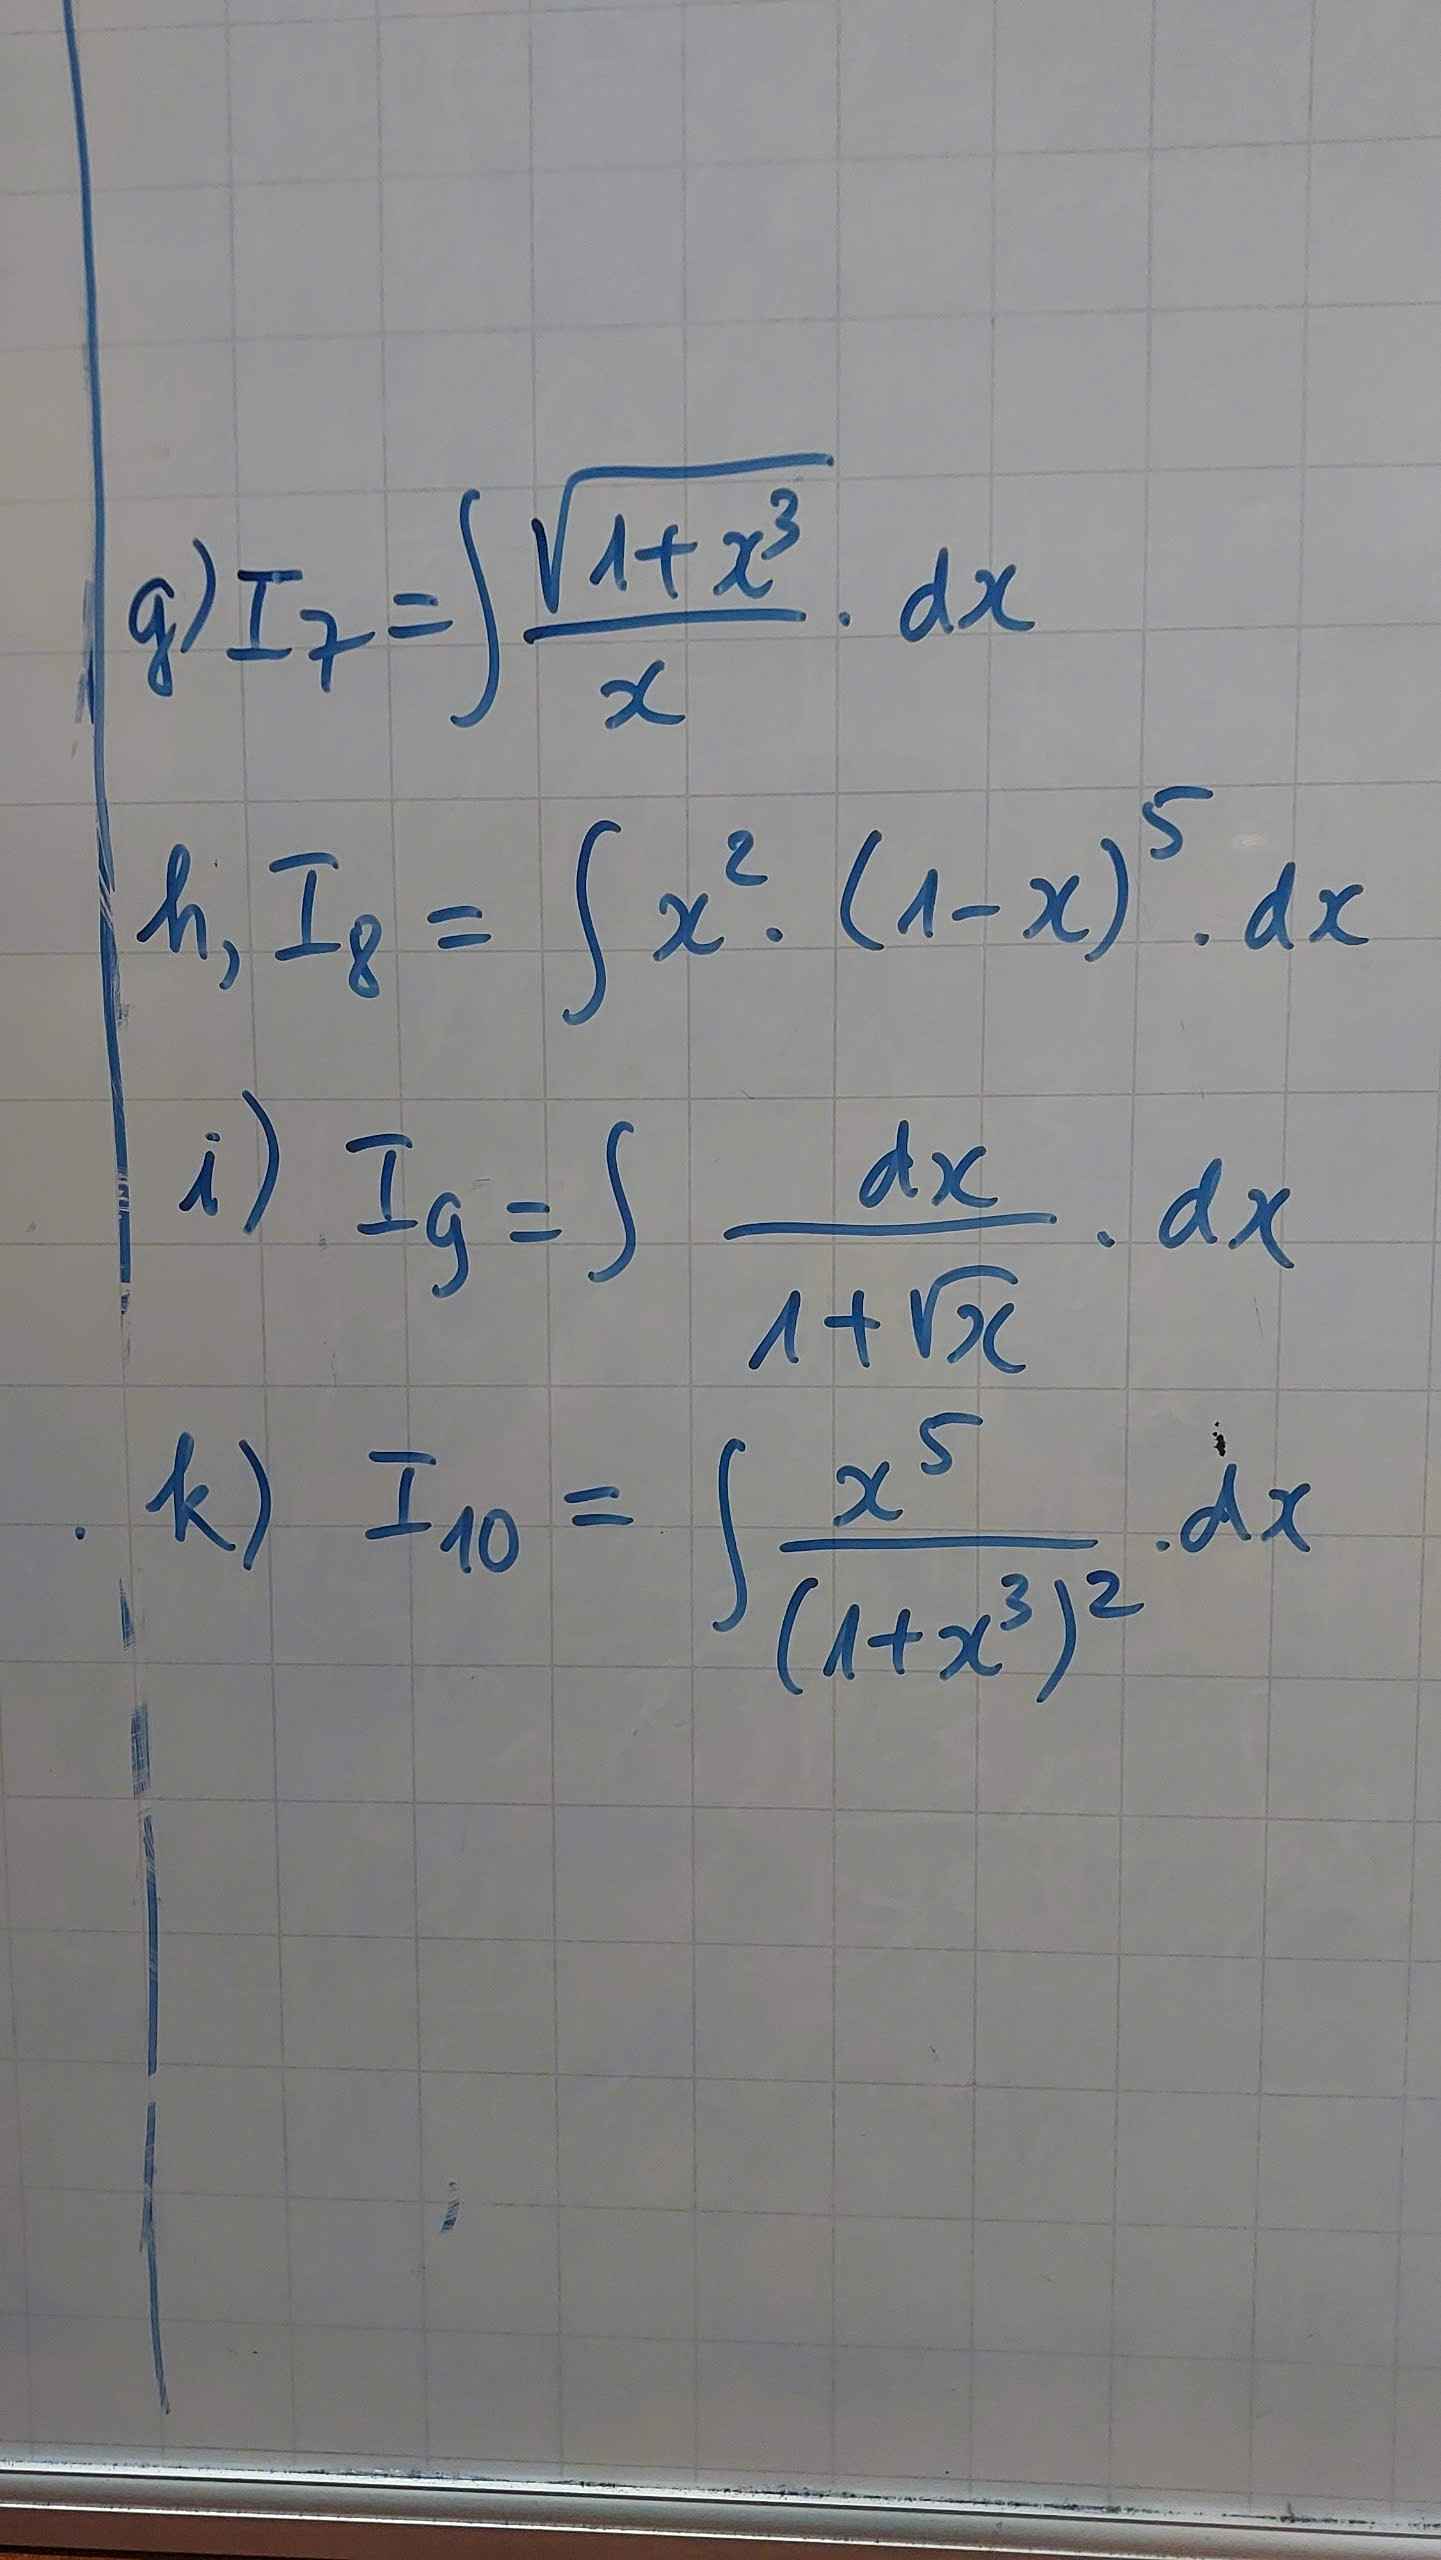 g) I₇ = ∫ √(1+x³)/x . dx
h, I₈ = ∫ x² . (1-x)⁵ . dx
i) I₉ = ∫ dx/(1+√x) . dx
. k) I₁₀ = ∫ x⁵/(1+x³)² . dx